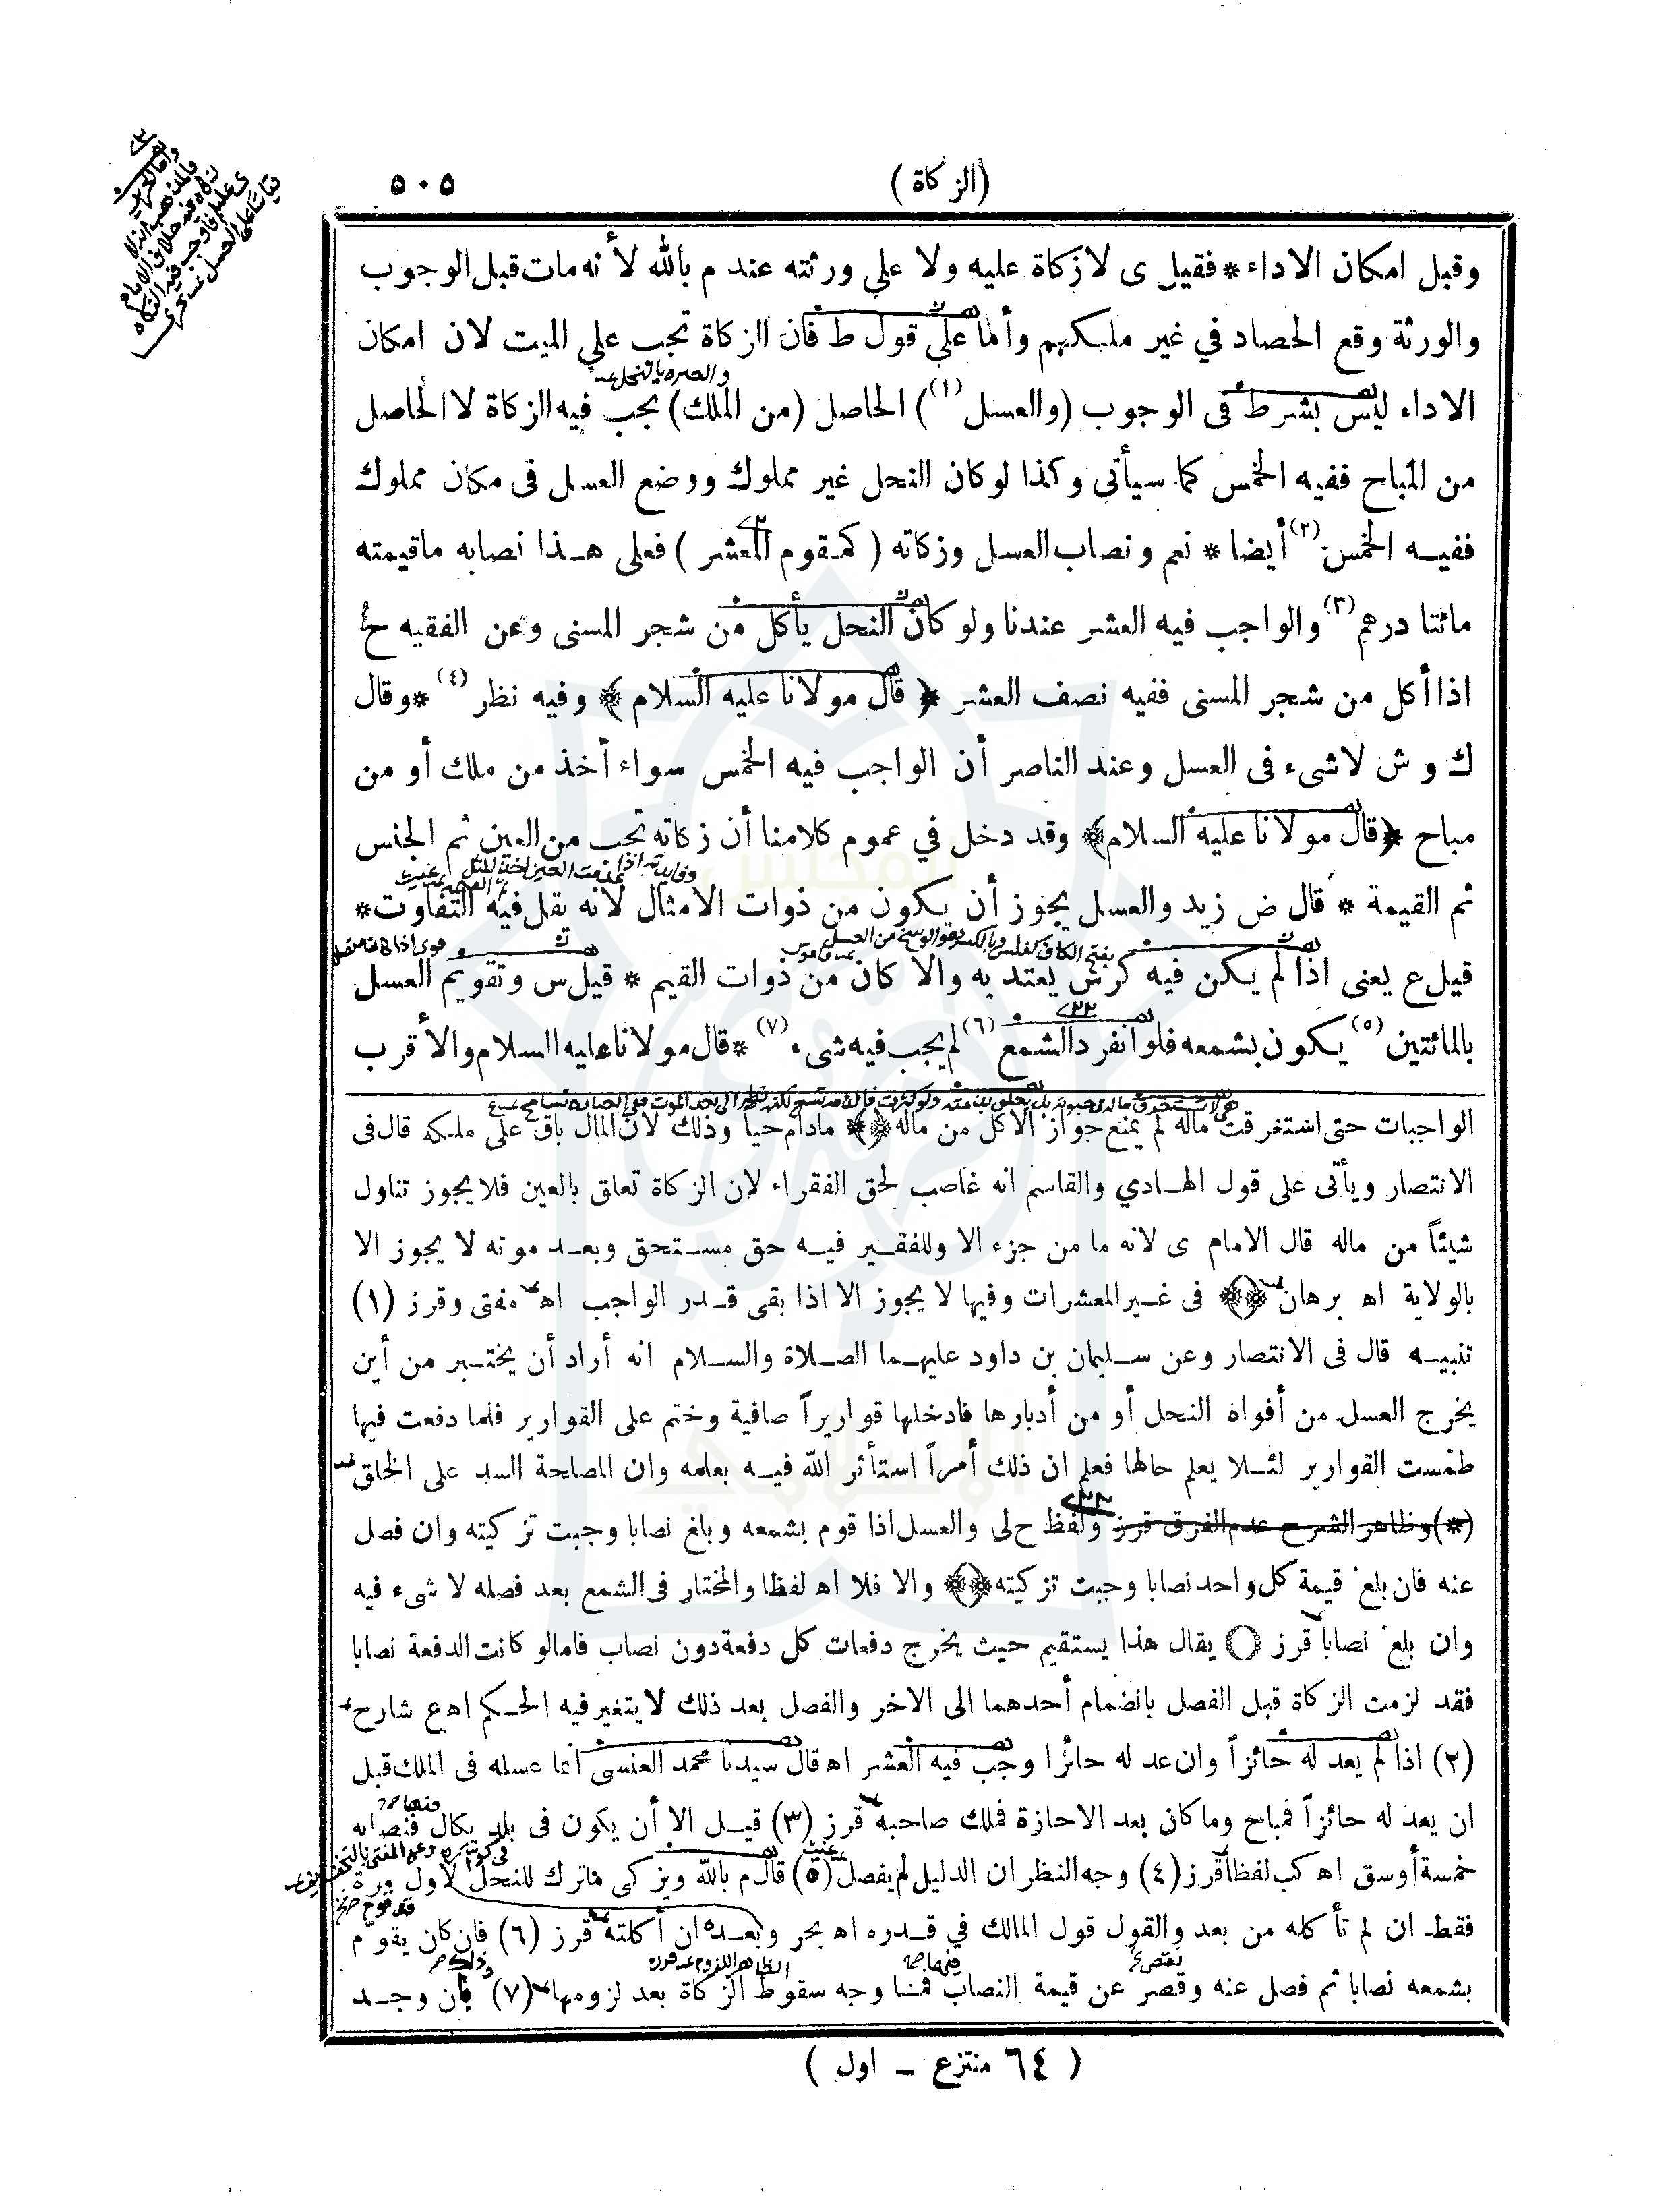 (الزكاة)
٥٠٥
وقبل امكان الاداء * فقيل ى لا زكاة عليه ولا علي ورثته عند م بالله لأنه مات قبل الوجوب
والورثة وقع الحصاد في غير ملكهم وأما على قول ط فان الزكاة تجب علي الميت لان امكان
الاداء ليس بشرط فى الوجوب (والعسل (١)) الحاصل (من الملك) يجب فيه الزكاة لا الحاصل
من المباح ففيه الخمس كما سيأتى وكذا لو كان النحل غير مملوك ووضع العسل فى مكان مملوك
ففيه الخمس (٢) أيضا * نعم ونصاب العسل وزكاته (كمقوم المعشر) فعلى هذا نصابه ما قيمته
مائتا درهم (٣) والواجب فيه العشر عندنا ولو كان النحل يأكل من شجر المسنى وعن الفقيه ح
اذا أكل من شجر المسنى ففيه نصف العشر ﴿قال مولانا عليه السلام﴾ وفيه نظر (٤) * وقال
ك و ش لا شىء فى العسل وعند الناصر أن الواجب فيه الخمس سواء أخذ من ملك أو من
مباح ﴿قال مولانا عليه السلام﴾ وقد دخل في عموم كلامنا أن زكاته تجب من العين ثم الجنس
ثم القيمة * قال ض زيد والعسل يجوز أن يكون من ذوات الامثال لانه يقل فيه التفاوت *
قيل ع يعنى اذا لم يكن فيه كرش يعتد به والا كان من ذوات القيم * قيل س وتقويم العسل
بالمائتين (٥) يكون بشمعه فلو انفرد الشمع (٦) لم يجب فيه شىء (٧) * قال مولانا عليه السلام والأقرب
الواجبات حتى استغرقت ماله لم يمنع جواز الاكل من ماله ﴿﴾ مادام حيا وذلك لان المال باق على ملكه قال فى
الانتصار ويأتى على قول الهادي والقاسم انه غاصب لحق الفقراء لان الزكاة تعلق بالعين فلا يجوز تناول
شيئاً من ماله قال الامام ى لانه ما من جزء الا وللفقير فيه حق مستحق وبعد موته لا يجوز الا
بالولاية اه برهان ﴿﴾ فى غير المعشرات وفيها لا يجوز الا اذا بقى قدر الواجب اه مفتى وقرز (١)
تنبيه قال فى الانتصار وعن سليمان بن داود عليهما الصلاة والسلام انه أراد أن يختبر من أين
يخرج العسل من أفواه النحل أو من أدبارها فادخلها قواريراً صافية وختم على القوارير فلما دفعت فيها
طمست القوارير لئلا يعلم حالها فعلم ان ذلك أمراً استأثر الله فيه بعلمه وان المصلحة السد على الخلق
(*) وظاهر الشرح عدم الفرق قرز ولفظ ح لى والعسل اذا قوم بشمعه وبلغ نصابا وجبت تزكيته وان فصل
عنه فان بلغ قيمة كل واحد نصابا وجبت تزكيته ﴿﴾ والا فلا اه لفظا والمختار فى الشمع بعد فصله لا شىء فيه
وان بلغ نصابا قرز () يقال هذا يستقيم حيث يخرج دفعات كل دفعة دون نصاب فاما لو كانت الدفعة نصابا
فقد لزمت الزكاة قبل الفصل بانضمام أحدهما الى الاخر والفصل بعد ذلك لا يتغير فيه الحكم اه ع شارح
(٢) اذا لم يعد له حائزاً وان عد له حائزا وجب فيه العشر اه قال سيدنا محمد العنسى انما عسله فى الملك قبل
ان يعد له حائزاً فمباح وما كان بعد الاحازة فملك صاحبه قرز (٣) قيل الا أن يكون فى بلد يكال فنصابه
خمسة أوسق اه كب لفظا قرز (٤) وجه النظر ان الدليل لم يفصل (٥) قال م بالله ويزكى ما ترك للنحل لاول مرة
فقط ان لم تأكله من بعد والقول قول المالك في قدره اه بحر وبعده ان أكلته قرز (٦) فان كان يقوم
بشمعه نصابا ثم فصل عنه وقصر عن قيمة النصاب فما وجه سقوط الزكاة بعد لزومها (٧) فان وجد
(٦٤ منتزع ــ اول)